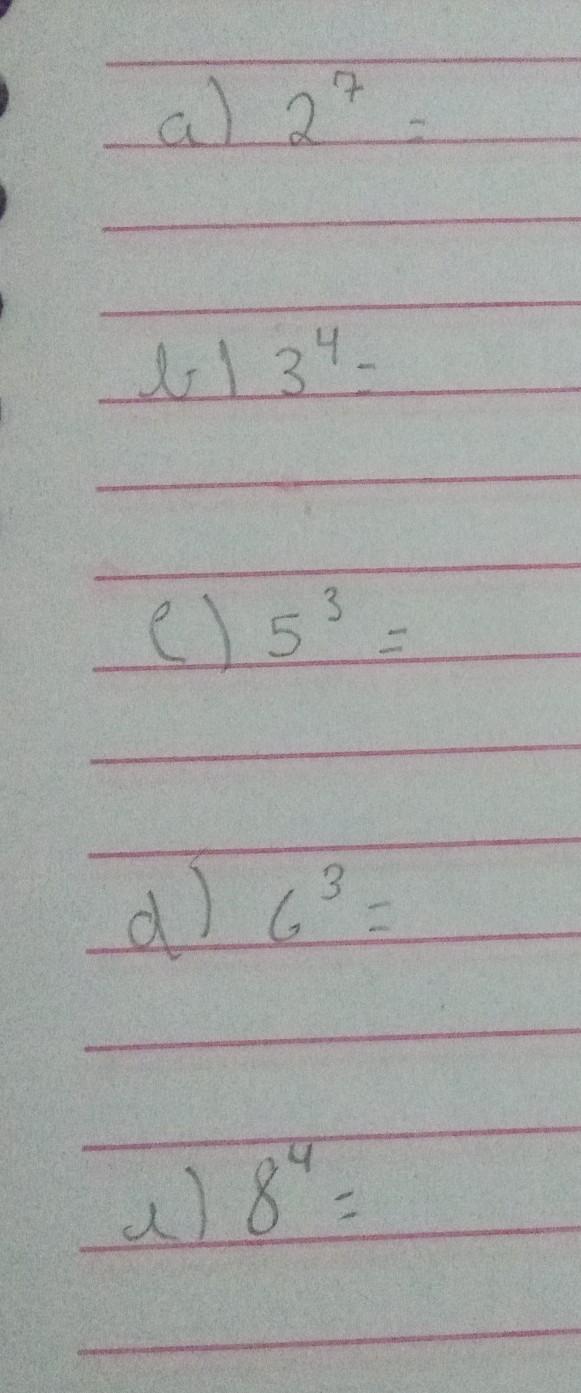 a) 2⁷ =
b) 3⁴ =
c) 5³ =
d) 6³ =
e) 8⁴ =